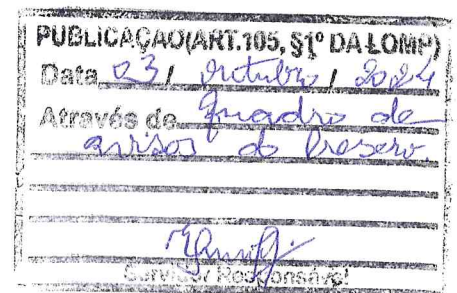 PUBLICAÇÃO(ART.105, §1º DA LOMP)
Data 03 / outubro / 2024
Através de quadro de
avisos do Preserv.
Servidor Responsável